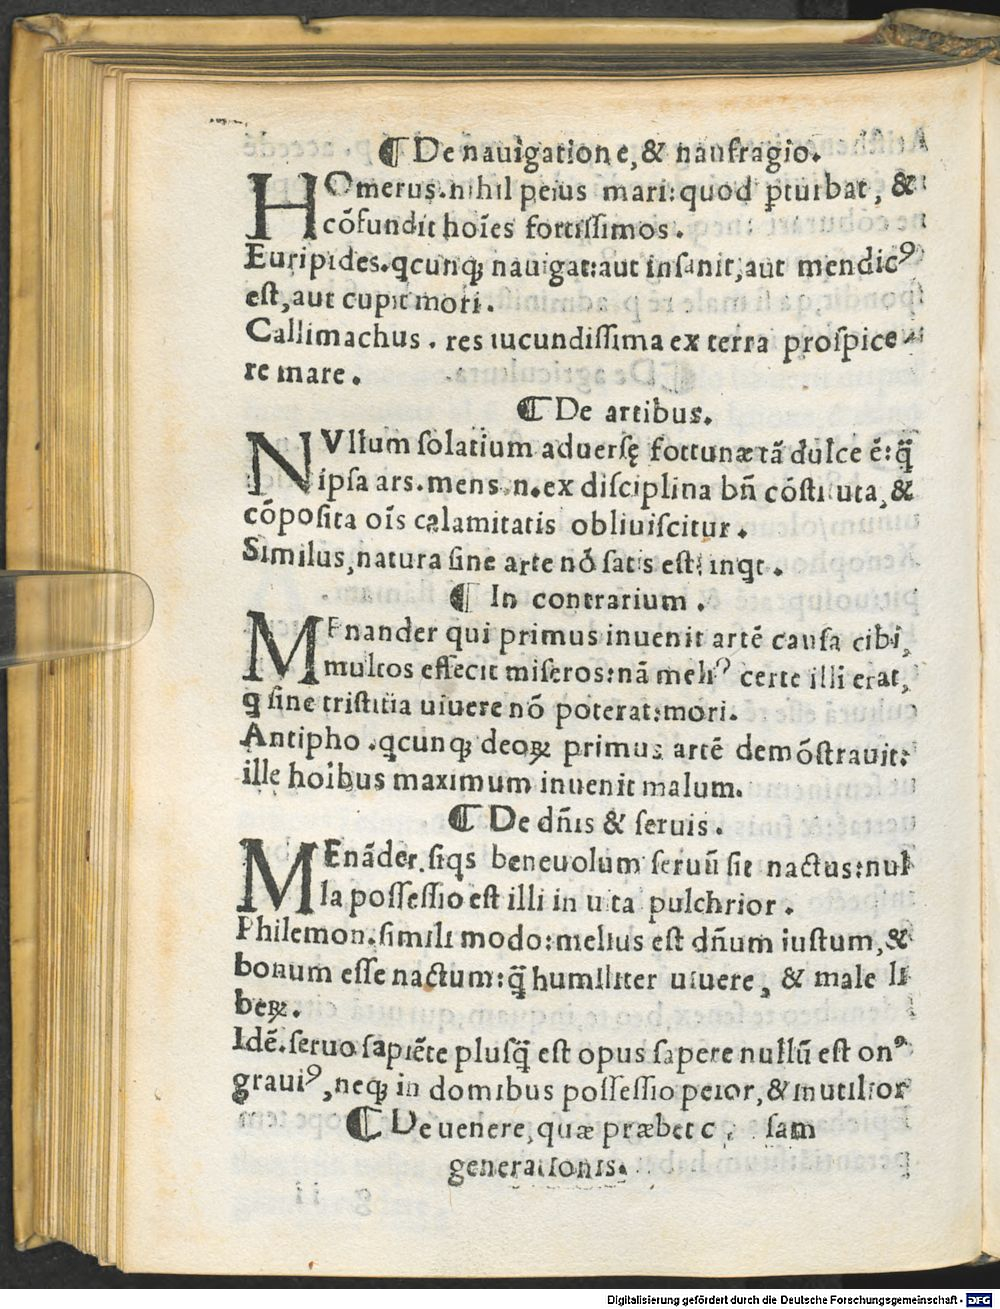 ¶ De nauigatione, & naufragio.
HOmerus. nihil peius mari: quod ꝑturbat, &
cõfundit hoĩes fortissimos.
Euripides. qcunqꝫ nauigat: aut insanit, aut mendicꝰ
est, aut cupit mori.
Callimachus. res iucundissima ex terra prospice
re mare.
¶ De artibus.
NVllum solatium aduersę fortunæ tã dulce ẽ: q̃
ipsa ars. mens .n. ex disciplina bñ cõstituta, &
cõposita oĩs calamitatis obliuiscitur.
Similus, natura sine arte nõ satis est: inqt.
¶ In contrarium.
MEnander qui primus inuenit artẽ causa cibi,
multos effecit miseros: nã meliꝰ certe illi erat,
q sine tristitia uiuere nõ poterat: mori.
Antipho. qcunqꝫ deoꝝ primus artẽ demõstrauit:
ille hoibus maximum inuenit malum.
¶ De dñis & seruis.
MEnãder. siqs beneuolum seruũ sit nactus: nul
la possessio est illi in uita pulchrior.
Philemon. simili modo: melius est dñum iustum, &
bonum esse nactum: q̃ humiliter uiuere, & male li
beꝝ.
Idẽ. seruo sapiẽte plusq̃ est opus sapere nullũ est onꝰ
grauiꝰ, neqꝫ in domibus possessio peior, & inutilior
¶ De uenere, quæ præbet
generationis.
Digitalisierung gefördert durch die Deutsche Forschungsgemeinschaft - DFG